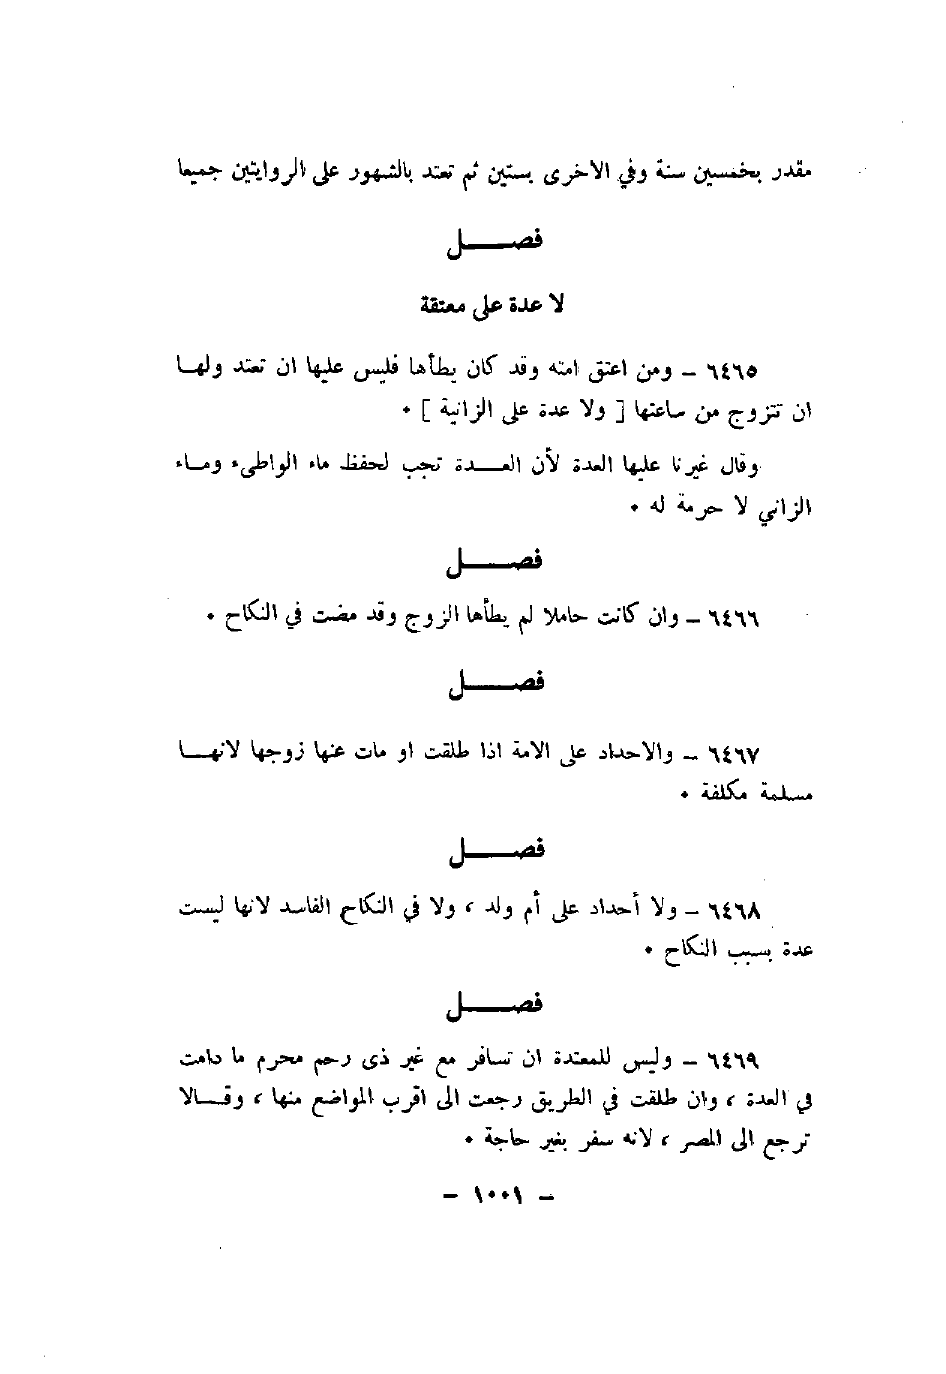 مقدر بخمسين سنة وفي الاخرى بستين ثم تعتد بالشهور على الروايتين جميعا
فصــــل
لا عدة على معتقة
٦٤٦٥ – ومن اعتق امته وقد كان يطأها فليس عليها ان تعتد ولهــا
ان تتزوج من ساعتها [ ولا عدة على الزانية ] ٠
وقال غيرنا عليها العدة لأن العـــدة تجب لحفظ ماء الواطىء ومــاء
الزاني لا حرمة له ٠
فصــــل
٦٤٦٦ – وان كانت حاملا لم يطأها الزوج وقد مضت في النكاح ٠
فصــــل
٦٤٦٧ – والاحداد على الامة اذا طلقت او مات عنها زوجها لانهــا
مسلمة مكلفة ٠
فصــــل
٦٤٦٨ – ولا أحداد على أم ولد ، ولا في النكاح الفاسد لانها ليست
عدة بسبب النكاح ٠
فصــــل
٦٤٦٩ – وليس للمعتدة ان تسافر مع غير ذى رحم محرم ما دامت
في العدة ، وان طلقت في الطريق رجعت الى اقرب المواضع منها ، وقــالا
ترجع الى المصر ، لانه سفر بغير حاجة ٠
– ١٠٠١ –